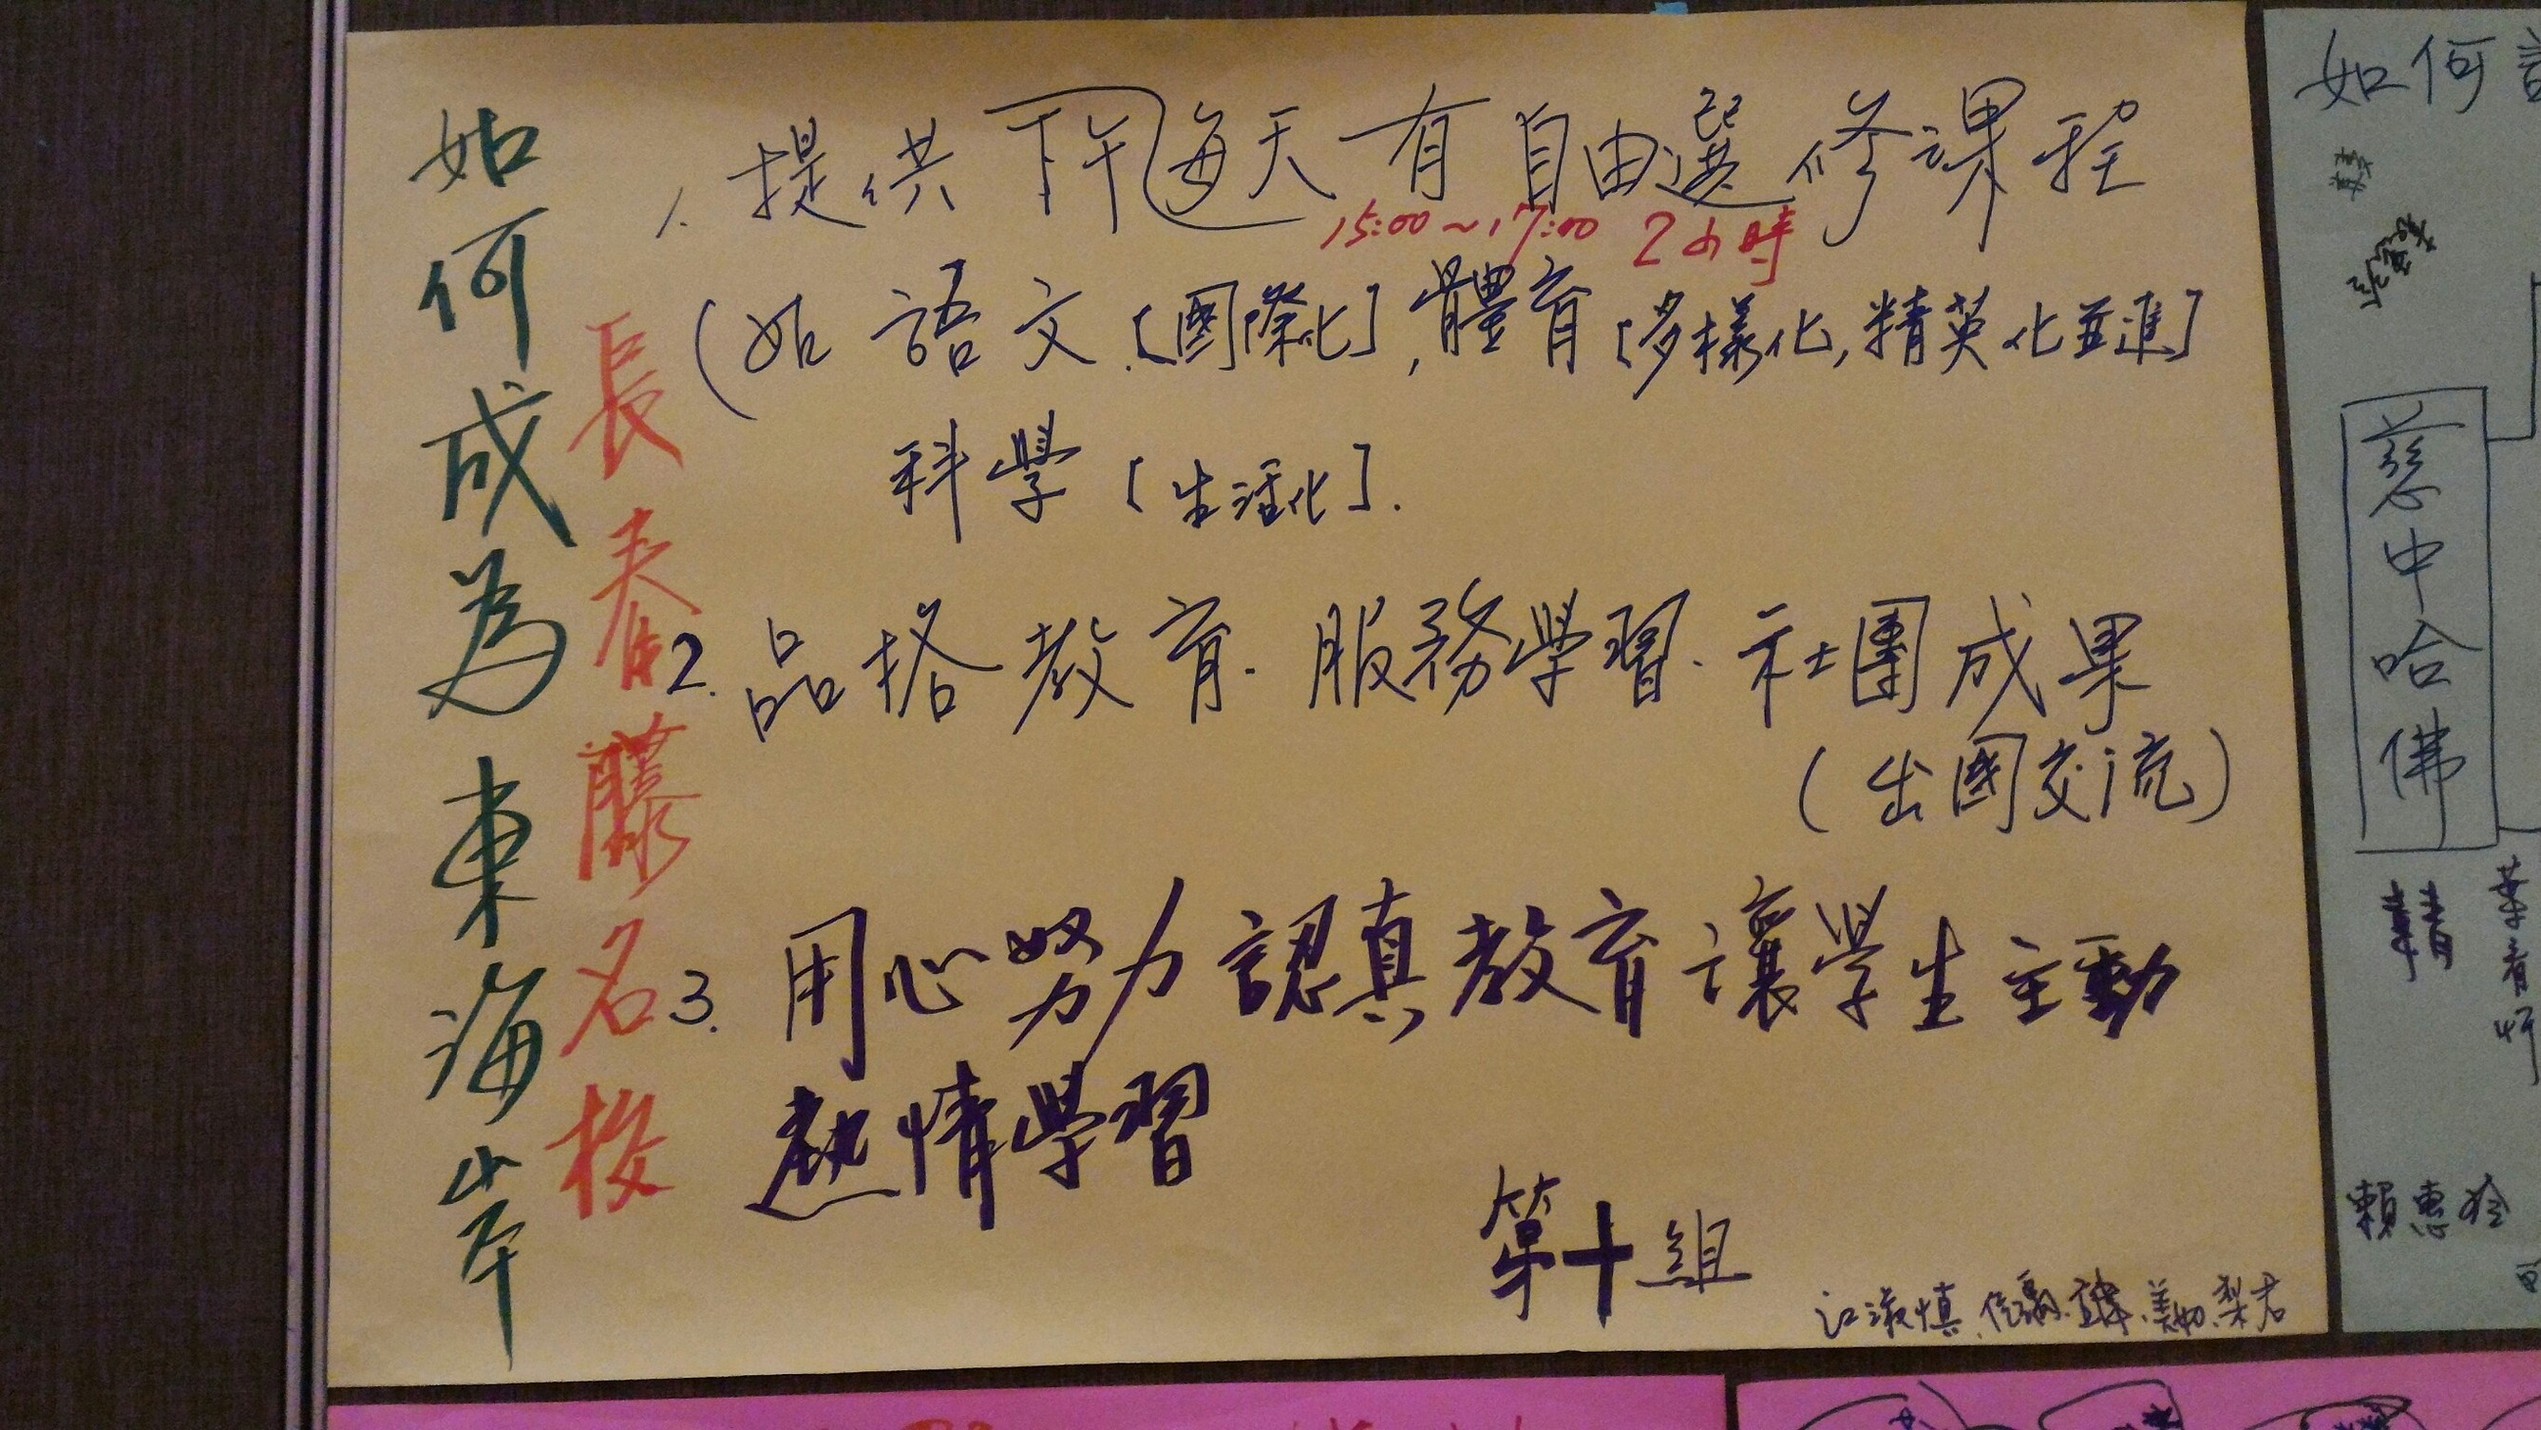 如何成為東海岸
長春藤名校
1. 提供下午每天有自由選修課程
15:00~17:00 2小時
(如語文[國際化],體育[多樣化,精英化並進]
科學[生活化].
2. 品格教育.服務學習.社團成果
(出國交流)
3. 用心努力認真教育讓學生主動
熱情學習
第十組
江淑慎、美、梨君
如何
慈中哈佛
賴惠玲